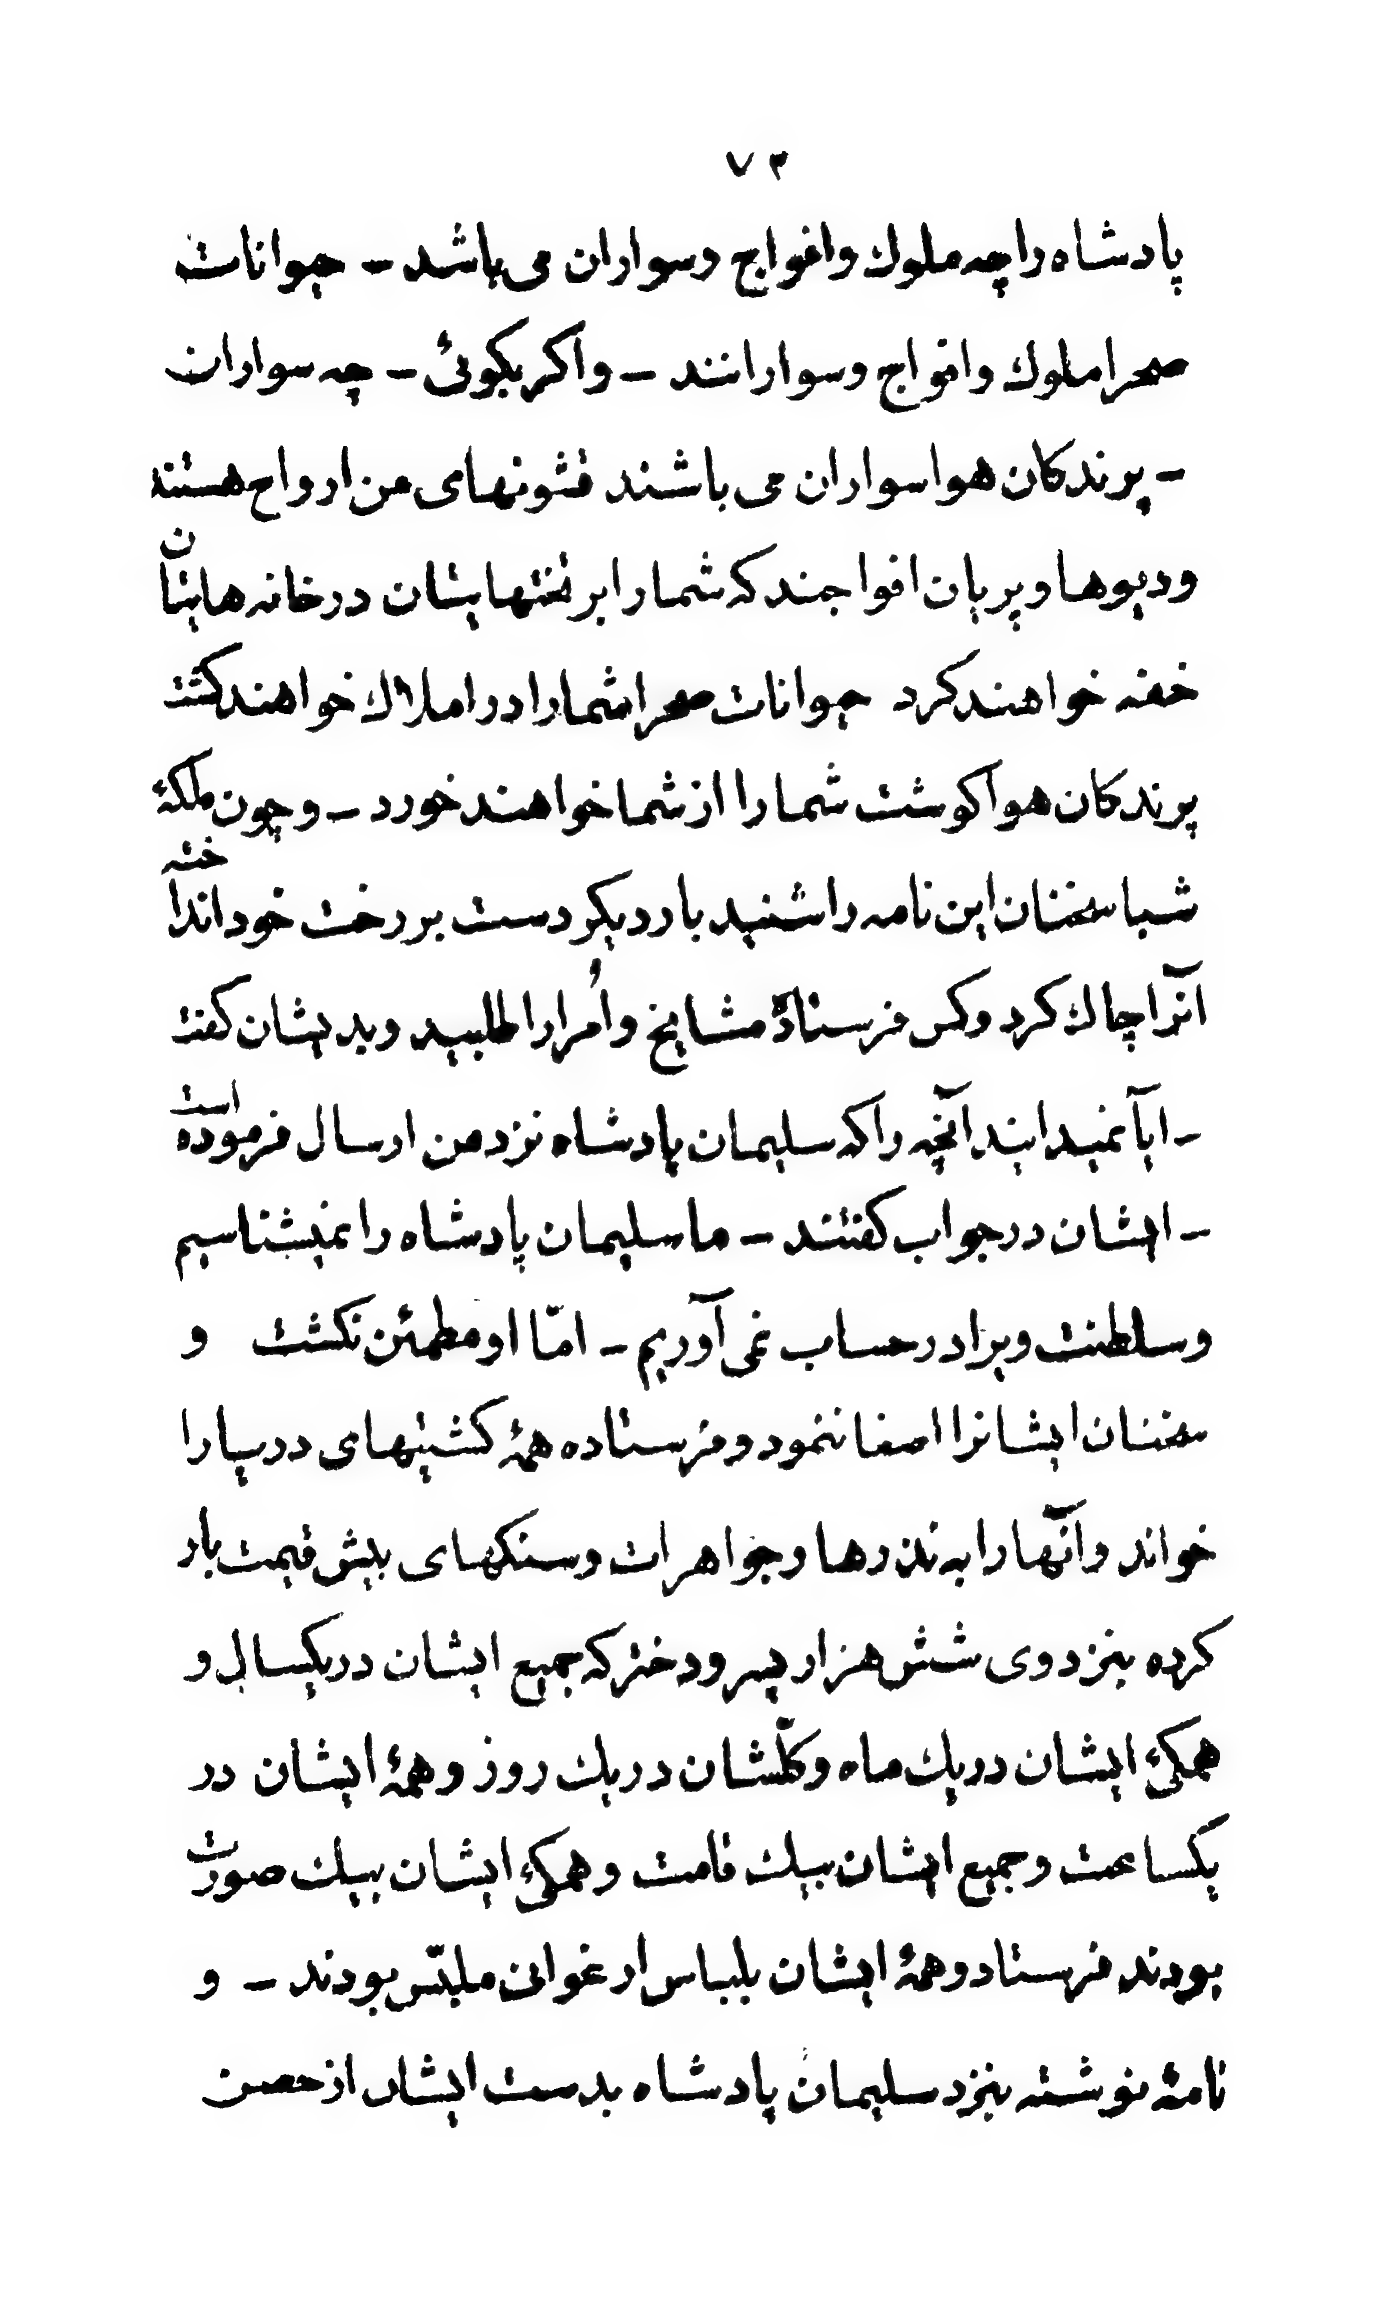 ۷۳
پادشاه را چه ملوك و افواج و سواران می باشد - حیوانات
صحرا ملوك و افواج و سوارانند - و اکر بکوئی - چه سواران
- پرندکان هوا سواران می باشند قشونهای من ارواح هستند
و دیوها و پریان افواجند که شما را بر تختهایشان در خانه هایشان
خفه خواهند کرد حیوانات صحرا شما را در املاك خواهند کشت
پرندکان هوا کوشت شما را از شما خواهند خورد - و چون ملکۀ
شبا سخنان این نامه را شنید بار دیکر دست بر رخت خود انداخته
آنرا چاك کرد و کس فرستادۀ مشایخ و اُمرا را طلبید و بدیشان کفت
- ایا نمیدانید آنچه را که سلیمان پادشاه نزد من ارسال فرموده است
- ایشان در جواب کفتند - ما سلیمان پادشاه را نمیشناسیم
و سلطنت ویرا در حساب نمی آوریم - امّا او مطمئن نکشت و
سخنان ایشانرا اصغا ننمود و فرستاده همۀ کشتیهای دریا را
خواند و آنها را به نذرها و جواهرات و سنکهای بیش قیمت بار
کرده بنزد وی شش هزار پسر و دختر که جمیع ایشان در یکسال و
همکئ ایشان در یك ماه و کلّشان در یك روز و همۀ ایشان در
یکساعت و جمیع ایشان بیك قامت و همکئ ایشان بیك صورت
بودند فرستاد و همۀ ایشان بلباس ارغوانی ملبّس بودند - و
نامۀ نوشته بنزد سلیمان پادشاه بدست ایشان از حصن